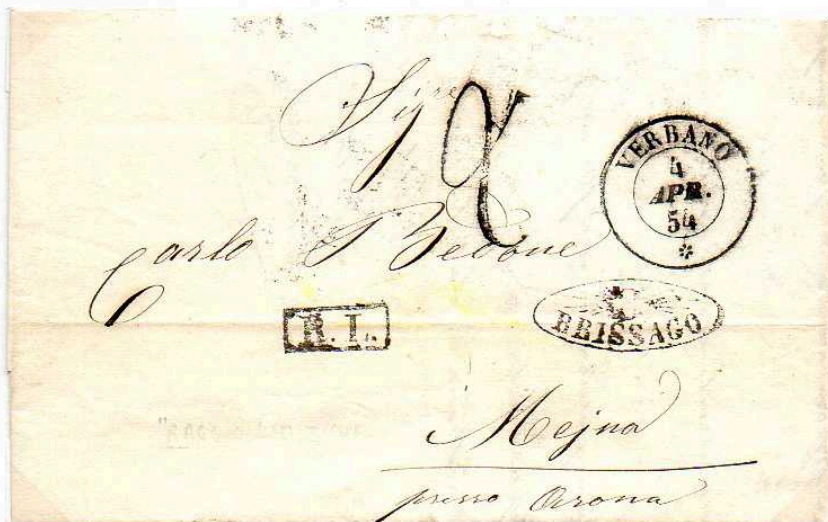 Sigre
2
VERBANO
4
APR.
54
Carlo Bedone
R. L.
BRISSAGO
Mejna
presso Arona